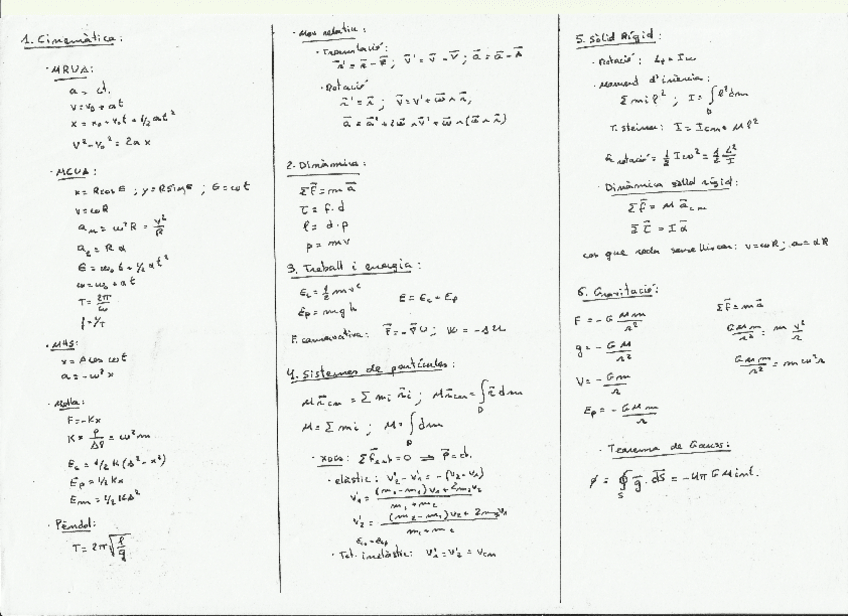 1. Cinemàtica:
· MRUA:
a = ct.
v = v₀ + at
x = x₀ + v₀t + 1/2 at²
v² - v₀² = 2ax
· MCUA:
x = R cos θ ; y = R sin θ ; θ = ωt
v = ωR
aₙ = ω²R = v²/R
aₜ = R α
θ = ω₀t + 1/2 αt²
ω = ω₀ + αt
T = 2π/ω
f = 1/T
· MHS:
x = A cos ωt
a = -ω²x
· Molla:
F = -Kx
K = P/Δl = ω²m
Ec = 1/2 K(A² - x²)
Ep = 1/2 Kx
Em = 1/2 KA²
· Pèndol:
T = 2π√(l/g)
· Mov relatiu:
· Translació:
r⃗' = r⃗ - R⃗ ; v⃗' = v⃗ - V⃗ ; a⃗ = a⃗ - A⃗
· Rotació
r⃗' = r⃗ ; v⃗ = v⃗' + ω⃗ ∧ r⃗,
a⃗ = a⃗' + 2ω⃗ ∧ v⃗' + ω⃗ ∧ (ω⃗ ∧ r⃗)
2. Dinàmica:
Σf⃗ = m a⃗
τ = f · d
l = d · p
p = mv
3. Treball i energia:
Ec = 1/2 mv²
E = Ec + Ep
Ep = mgh
F. conservativa: F⃗ = -∇⃗U ; W = -ΔU
4. Sistemes de partícules:
M r⃗cm = Σ mi r⃗i ; M r⃗cm = ∫D r⃗ dm
M = Σ mi ; M = ∫D dm
· xocs: Σf⃗ext = 0 ⟹ p⃗ = ct.
· elàstic: v₂' - v₁' = -(v₂ - v₁)
v₁' = ((m₁ - m₂)v₁ + 2m₂v₂)/(m₁ + m₂)
v₂' = ((m₂ - m₁)v₂ + 2m₁v₁)/(m₁ + m₂)
· Tot. inelàstic: v₁' = v₂' = vcm
5. Sòlid Rígid:
· Rotació: L = Iω
· Moment d'inèrcia:
Σ mi l² ; I = ∫D l² dm
T. Steiner: I = Icm + Ml²
Ec rotació = 1/2 Iω² = 1/2 L²/I
· Dinàmica sòlid rígid:
Σf⃗ = M a⃗cm
Στ⃗ = I α⃗
cos que roda sense lliscar: v = ωR ; a = αR
6. Gravitació:
Σf⃗ = m a⃗
F = -GMm/r²
GMm/r² = m v²/r
g = -GM/r²
GMm/r² = mω²r
V = -Gm/r
Ep = -GMm/r
· Teorema de Gauss:
ϕ = ∮S g⃗ · d⃗s = -4πGMint.